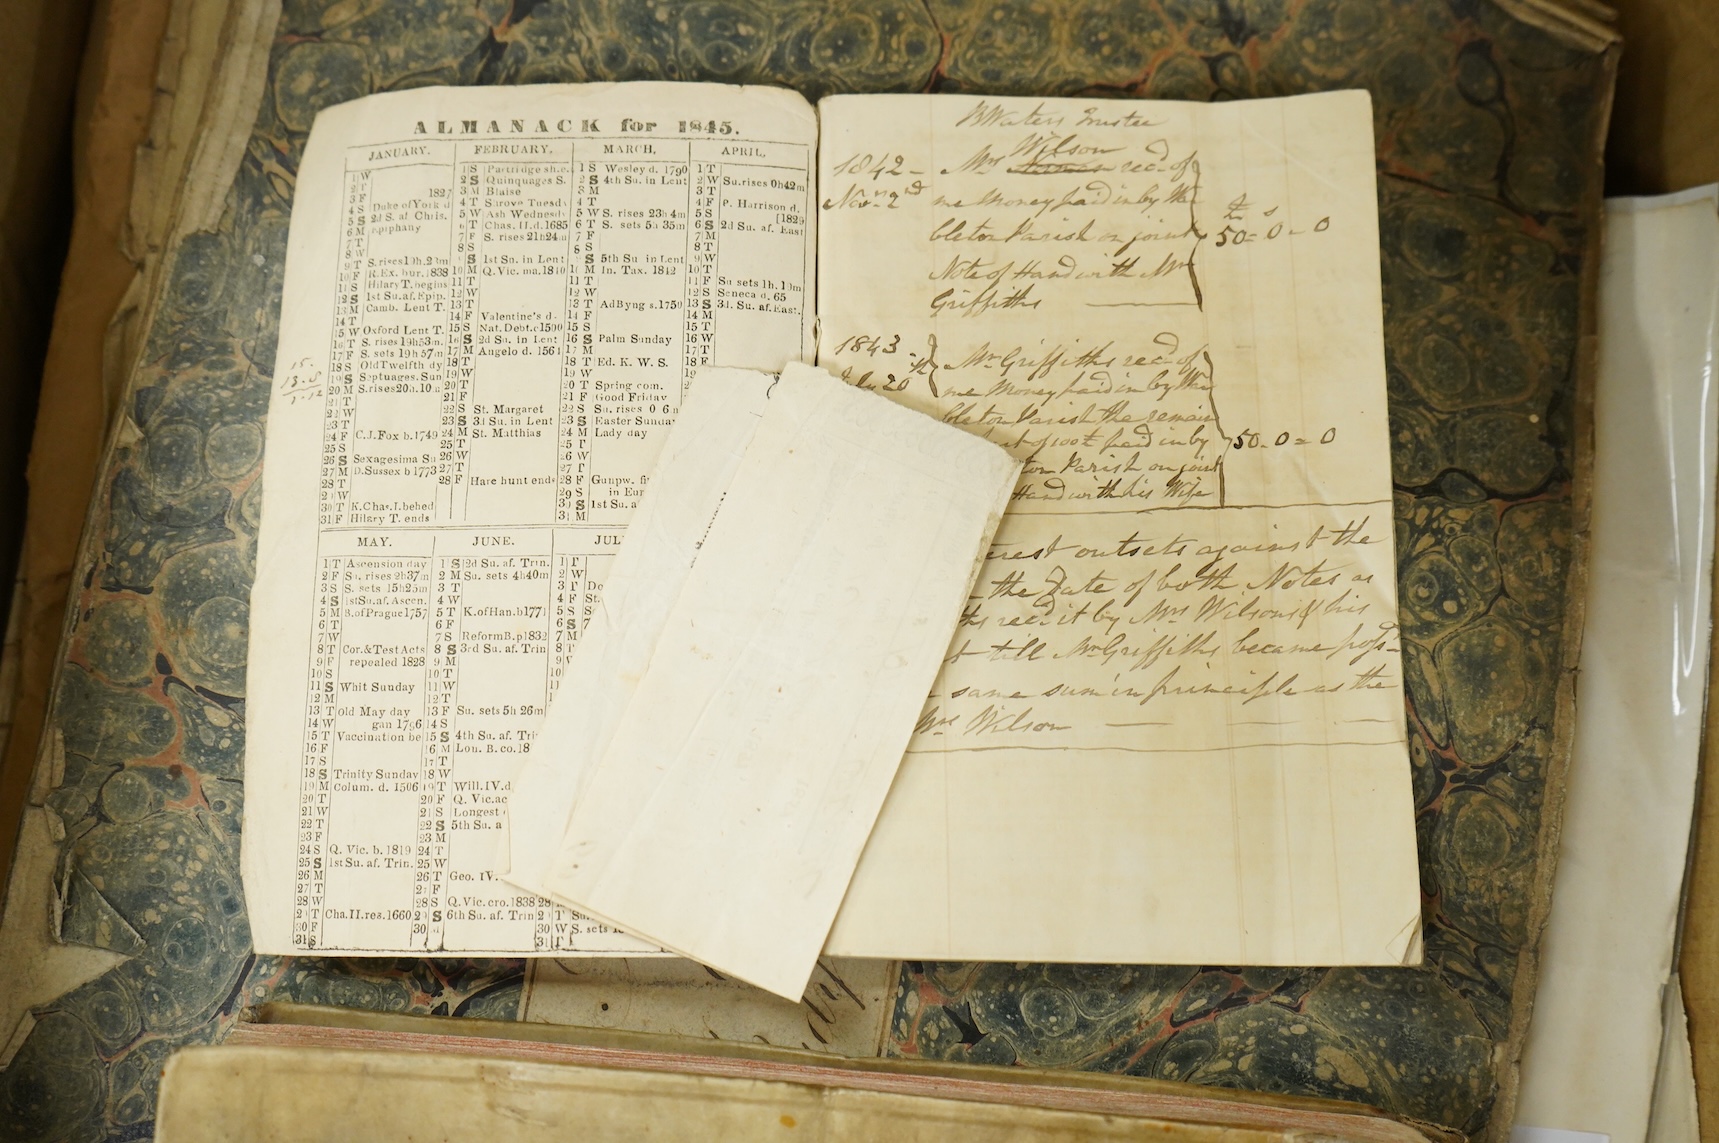 ALMANACK for 1845.
JANUARY.
1 W
2 T
3 F 1827
4 S Duke of York d
5 S 2d S. af Chris.
6 M Epiphany
7 T
8 W
9 T S.rises19h.23m
10 F R.Ex. bur. 1838
11 S Hilary T. begins
12 S 1st Su.af.Epip.
13 M Camb. Lent T.
14 T
15 W Oxford Lent T.
16 T S. rises 19h53m.
17 F S. sets 19h57m
18 S Old Twelfth dy
19 S Septuages. Sun
20 M S.rises20h.10m
21 T
22 W
23 T
24 F C.J.Fox b.1749
25 S
26 S Sexagesima Su
27 M D.Sussex b 1773
28 T
29 W
30 T K.Chas.I.behed
31 F Hilary T. ends
FEBRUARY.
1 S Partridge sh.e.
2 S Quinquages S.
3 M Blaise
4 T Shrove Tuesd
5 W Ash Wednesd
6 T Chas. II.d.1685
7 F S. rises 21h24m
8 S
9 S 1st Su. in Lent
10 M Q.Vic. ma.1840
11 T
12 W
13 T
14 F Valentine's d
15 S Nat. Debt.c1500
16 S 2d Su. in Lent
17 M Angelo d. 1564
18 T
19 W
20 T
21 F
22 S St. Margaret
23 S 3d Su. in Lent
24 M St. Matthias
25 T
26 W
27 T
28 F Hare hunt ends
MARCH,
1 S Wesley d. 1790
2 S 4th Su. in Lent
3 M
4 T
5 W S. rises 23h 4m
6 T S. sets 5h 35m
7 F
8 S
9 S 5th Su in Lent
10 M In. Tax. 1842
11 T
12 W
13 T AdByng s.1750
14 F
15 S
16 S Palm Sunday
17 M
18 T Ed. K. W. S.
19 W
20 T Spring com.
21 F Good Friday
22 S Su. rises 0 6m
23 S Easter Sunday
24 M Lady day
25 T
26 W
27 T
28 F Gunpw.
29 S in Eur
30 S 1st Su. a
31 M
APRIL,
1 T
2 W Su.rises 0h42m
3 T
4 F P. Harrison d.
5 S [1829
6 S 2d Su. af. East
7 M
8 T
9 W
10 T
11 F Su sets 1h. 10m
12 S Seneca d. 65
13 S 3d. Su. af.East.
14 M
15 T
16 W
17 T
18 F
MAY.
1 T Ascension day
2 F Su. rises 2h37m
3 S S. sets 15h25m
4 S 1stSu.af.Ascen.
5 M B.of Prague1757
6 T
7 W
8 T Cor.&Test Acts
9 F repealed 1828
10 S
11 S Whit Sunday
12 M
13 T Old May day
14 W gan 1796
15 T Vaccination be
16 F
17 S
18 S Trinity Sunday
19 M Colum. d. 1506
20 T
21 W
22 T
23 F
24 S Q. Vic. b. 1819
25 S 1st Su. af. Trin.
26 M
27 T
28 W
29 T Cha.II.res.1660
30 F
31 S
JUNE.
1 S 2d Su. af. Trin.
2 M Su. sets 4h40m
3 T
4 W
5 T K.ofHan.b1771
6 F
7 S ReformB.p1832
8 S 3rd Su. af. Trin
9 M
10 T
11 W
12 T
13 F Su. sets 5h 26m
14 S
15 S 4th Su. af. Tri
16 M Lon. B. co.18
17 T
18 W
19 T Will.IV.d
20 F Q. Vic.ac
21 S Longest
22 S 5th Su. a
23 M
24 T
25 W
26 T Geo. IV.
27 F
28 S Q.Vic.cro.1838
29 S 6th Su. af. Trin
30 M
JUL
1 T
2 W
3 T
4 F St.
5 S
6 S 7
7 M
8 T
9 W
10
11
28
29 T
30 W S. sets
31 T
B Waters Trustee
Wilson
1842 - Mrs James recd of
Novr 2nd me Money paid in by the
bleton Parish on joint 50 = 0 - 0
Note of Hand with Mr
Griffiths
1843 Mr Griffiths recd of
July 20 me Money paid in by the
bleton Parish the remain
of 100£ paid in by 50 - 0 = 0
ton Parish on joint
Hand with his Wife
erest outsets against the
the Date of both Notes as
ths recd it by Mrs Wilsons & his
t till Mr Griffiths became poss-
same sum in principle as the
Mrs Wilson